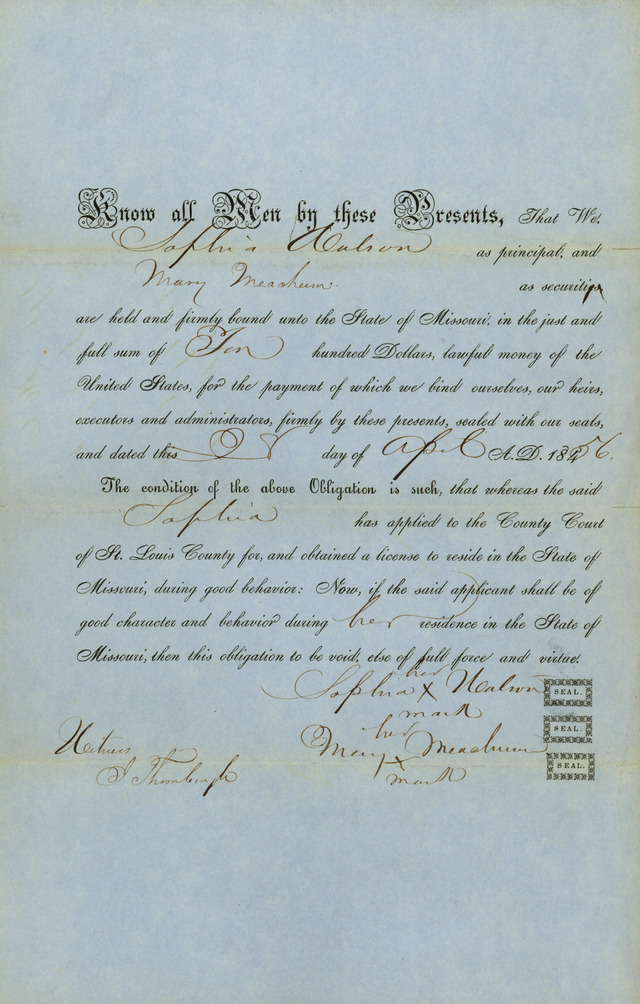 Know all Men by these Presents, That We,
Sophia
as principal, and
Mary Meachum.
as securities
are held and firmly bound unto the State of Missouri, in the just and
full sum of Ten hundred Dollars, lawful money of the
United States, for the payment of which we bind ourselves, our heirs,
executors and administrators, firmly by these presents, sealed with our seals,
and dated this 28 day of April A.D. 1856.
The condition of the above Obligation is such, that whereas the said
Sophia has applied to the County Court
of St. Louis County for, and obtained a license to reside in the State of
Missouri, during good behavior: Now, if the said applicant shall be of
good character and behavior during her residence in the State of
Missouri, then this obligation to be void, else of full force and virtue.
her
Sophia X SEAL.
mark
her
SEAL.
Witness Mary X Meachum
mark SEAL.